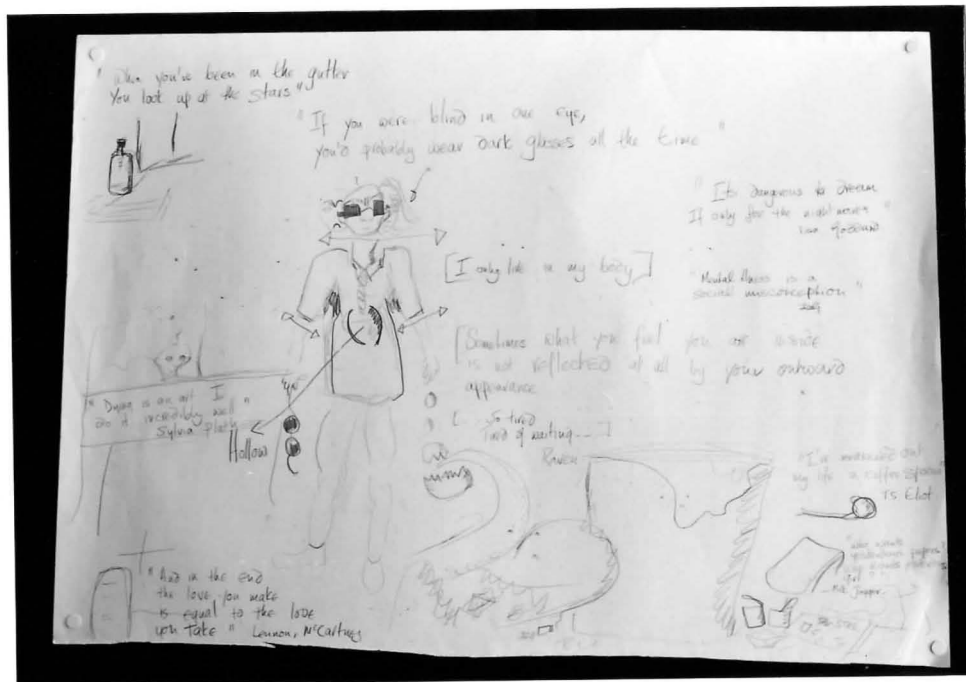 " When you've been in the gutter
You look up at the stars "
" If you were blind in one eye,
you'd probably wear dark glasses all the time "
" Its dangerous to dream
If only for the nightmares "
[I only live in my body]
" Mental illness is a
social misconception "
[Sometimes what you feel you are inside
is not reflected at all by your outward
appearance
[ ... So tired
Tired of waiting .... ]
" Dying is an art I
do it incredibly well "
Sylvia Plath
Hollow
Raven
" I've measured out
my life a coffee spoons "
TS Eliot
" Who wants
yesterdays papers
" And in the end
the love you make
is equal to the love
you Take " Lennon, McCartney